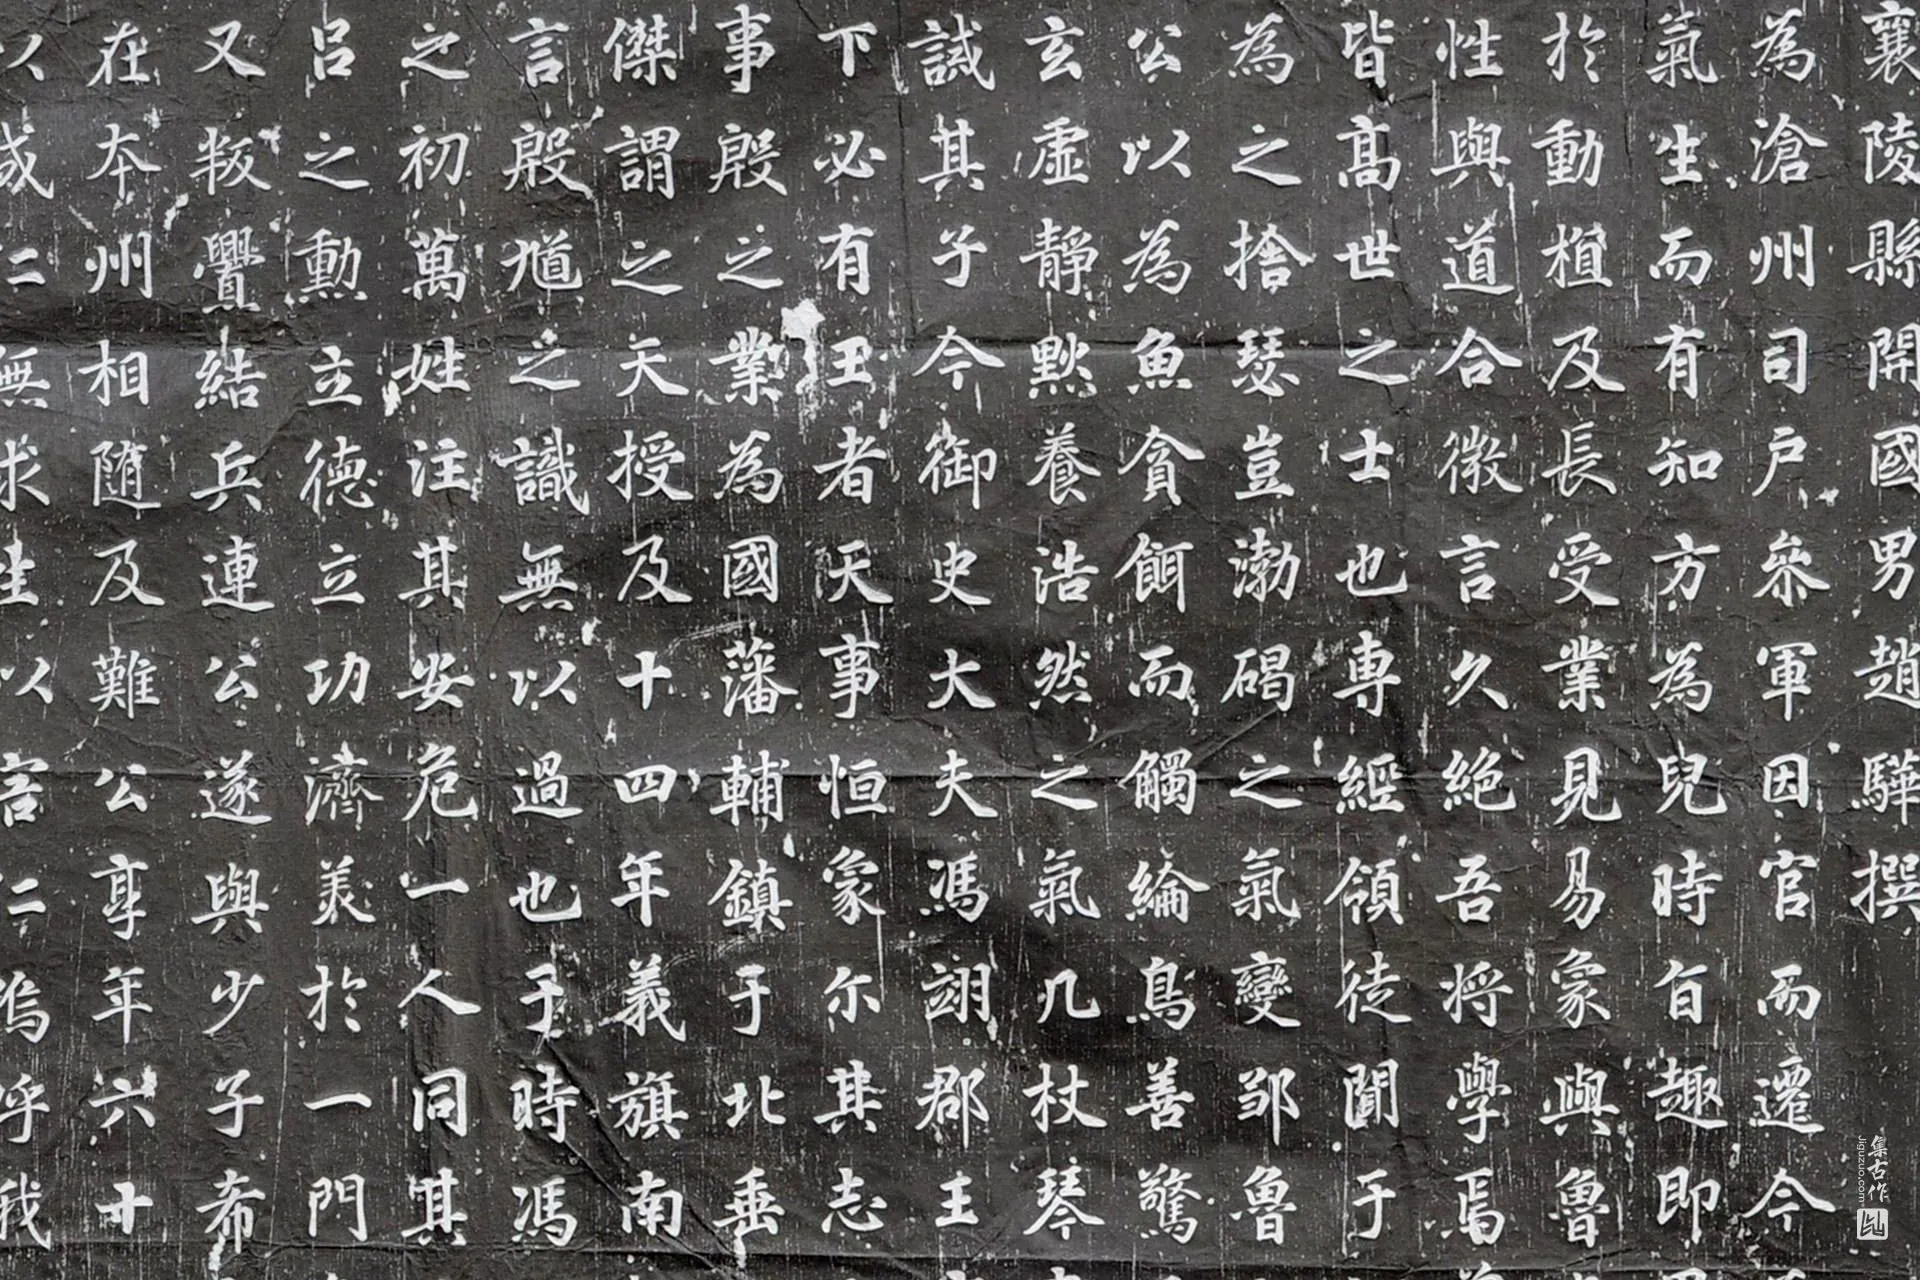 襄陵縣開國男趙驊撰
為滄州司户叅軍因官而遷今
氣生而有知方為兒時自趣即
於動植及長受業見易象與魯
性與道合徵言久絕吾將學焉
皆高世之士也専經領徒闐于
為之捨瑟豈渤碣之氣變鄒魯
公以為魚貪餌而觸綸鳥善驚
玄虛靜默養浩然之氣几杖琴
誡其子今御史大夫馮翊郡王
下必有王者天事恒象尔其志
事殷之業為國藩輔鎮于北垂
傑謂之天授及十四年義旗南
言殷馗之識無以過也于時馮
之初萬姓注其安危一人同其
呂之勳立德立功濟美於一門
又叛釁結兵連公遂與少子希
在本州相随及難公享年六十
以成仁無求生以害仁嗚呼我
集古作
Jiguzuo.com